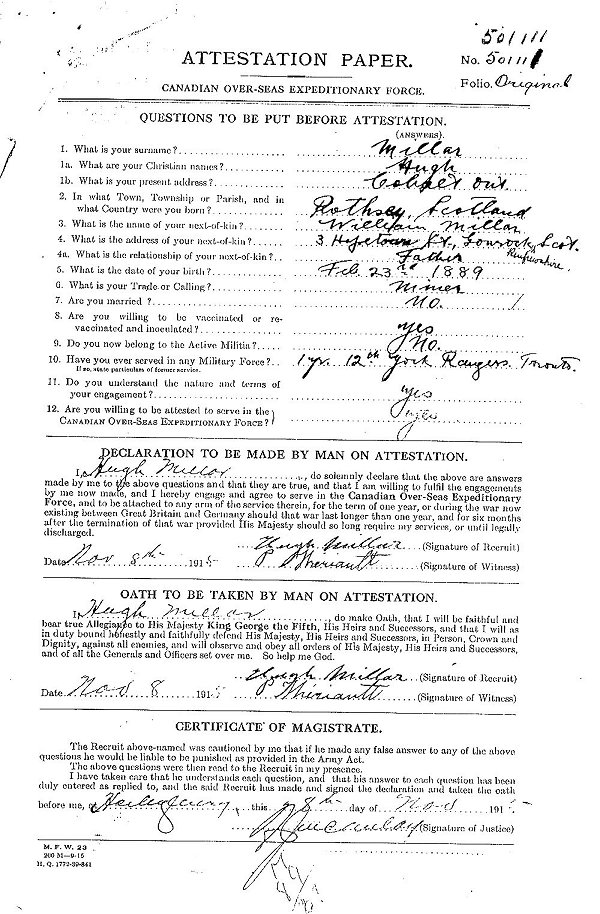 501111
ATTESTATION PAPER.
No. 501111
Folio. Original
CANADIAN OVER-SEAS EXPEDITIONARY FORCE.
QUESTIONS TO BE PUT BEFORE ATTESTATION.
(ANSWERS).
1. What is your surname? Millar
1a. What are your Christian names? Hugh
1b. What is your present address? Ont.
2. In what Town, Township or Parish, and in
what Country were you born? Rothsey, Scotland
3. What is the name of your next-of-kin? William Millar
4. What is the address of your next-of-kin? 3 St., Scot.
Renfrewshire.
4a. What is the relationship of your next-of-kin? Father
5. What is the date of your birth? Feb. 23rd 1889
6. What is your Trade or Calling? Miner
7. Are you married? No.
8. Are you willing to be vaccinated or re-
vaccinated and inoculated? yes
9. Do you now belong to the Active Militia? No.
10. Have you ever served in any Military Force? 1 yr. 12th York Rangers. Toronto.
If so, state particulars of former service.
11. Do you understand the nature and terms of
your engagement? yes
12. Are you willing to be attested to serve in the
CANADIAN OVER-SEAS EXPEDITIONARY FORCE? yes
DECLARATION TO BE MADE BY MAN ON ATTESTATION.
I, Hugh Millar, do solemnly declare that the above are answers
made by me to the above questions and that they are true, and that I am willing to fulfil the engagements
by me now made, and I hereby engage and agree to serve in the Canadian Over-Seas Expeditionary
Force, and to be attached to any arm of the service therein, for the term of one year, or during the war now
existing between Great Britain and Germany should that war last longer than one year, and for six months
after the termination of that war provided His Majesty should so long require my services, or until legally
discharged.
Hugh Millar (Signature of Recruit)
Date Nov 8th 1915 P. Theriault (Signature of Witness)
OATH TO BE TAKEN BY MAN ON ATTESTATION.
I, Hugh Millar, do make Oath, that I will be faithful and
bear true Allegiance to His Majesty King George the Fifth, His Heirs and Successors, and that I will as
in duty bound honestly and faithfully defend His Majesty, His Heirs and Successors, in Person, Crown and
Dignity, against all enemies, and will observe and obey all orders of His Majesty, His Heirs and Successors,
and of all the Generals and Officers set over me. So help me God.
Hugh Millar (Signature of Recruit)
Date Nov 8 1915 P. Theriault (Signature of Witness)
CERTIFICATE OF MAGISTRATE.
The Recruit above-named was cautioned by me that if he made any false answer to any of the above
questions he would be liable to be punished as provided in the Army Act.
The above questions were then read to the Recruit in my presence.
I have taken care that he understands each question, and that his answer to each question has been
duly entered as replied to, and the said Recruit has made and signed the declaration and taken the oath
before me, at Haileybury, this 8th day of Nov 1915
(Signature of Justice)
M. F. W. 23
200 M—9-15
H. Q. 1772-39-841